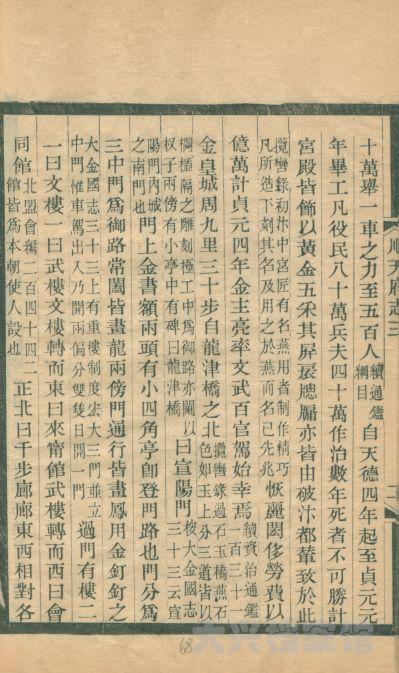 順天府志三
十萬舉一車之力至五百人續通鑑綱目自天德四年起至貞元元
年畢工凡役民八十萬兵夫四十萬作治數年死者不可勝計
宮殿皆飾以黃金五采其屏扆牕牖亦皆由破汴都輦致於此
攬轡錄初汴中宮匠有名燕用者制作精巧凡所造下刻其名及用之於燕而名已先兆恢麗閎侈勞費以
億萬計貞元四年金主亮率文武百官駕始幸焉續資治通鑑一百三十
金皇城周九里三十步自龍津橋之北攬轡錄過石玉橋燕石色如玉上分三道皆以
欄楯隔之雕刻極工中為御路亦闌以杈子兩傍有小亭中有碑曰龍津橋曰宣陽門按大金國志三十三云宣
陽門內城之南門也門上金書額兩頭有小四角亭即登門路也門分為
三中門為御路常闔皆畫龍兩傍門通行皆畫鳳用金釘釘之
大金國志三十三上有重樓制度宏大三門並立中門惟車駕出入乃開兩偏分雙隻日開一門過門有樓二
一曰文樓一曰武樓文樓轉而東曰來甯館武樓轉而西曰會
同館北盟會編二百四十四二館皆為本朝使人設也正北曰千步廊廊東西相對各
68